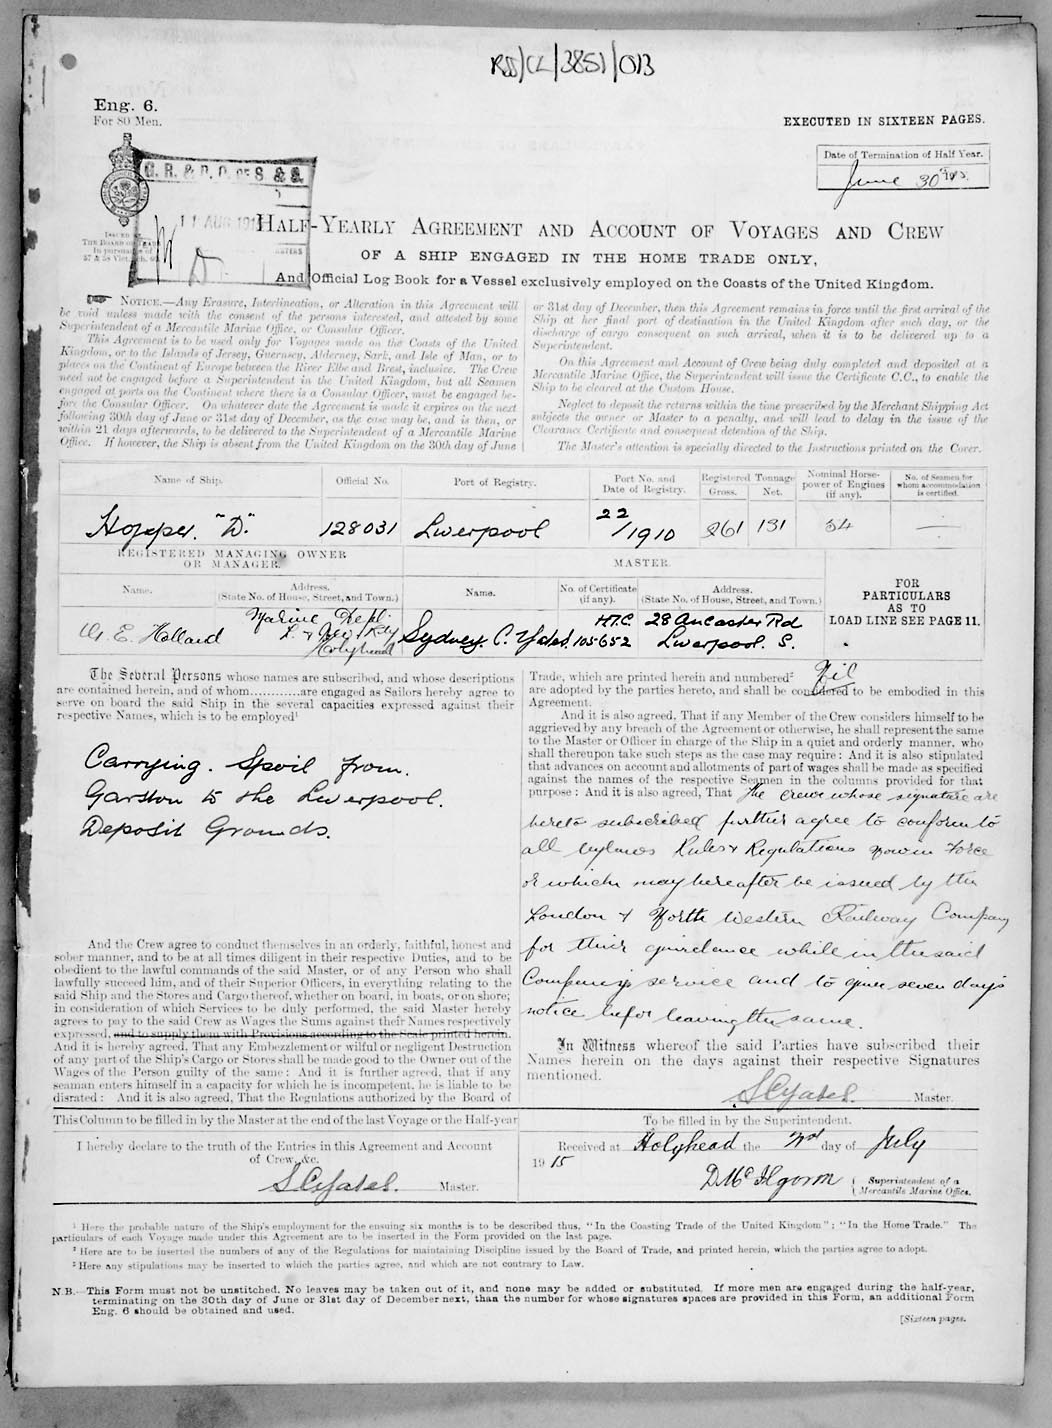 RSS/CL/3851/013
Eng. 6.
For 80 Men.
EXECUTED IN SIXTEEN PAGES.
Date of Termination of Half Year.
June 30th 1915
G. R. & D. O. OF S & S.
11 AUG 191
ISSUED BY
THE BOARD OF TRADE
In pursuance of
57 & 58 Vict. Ch. 60
HALF-YEARLY AGREEMENT AND ACCOUNT OF VOYAGES AND CREW
OF A SHIP ENGAGED IN THE HOME TRADE ONLY,
And Official Log Book for a Vessel exclusively employed on the Coasts of the United Kingdom.
NOTICE.—Any Erasure, Interlineation, or Alteration in this Agreement will
be void unless made with the consent of the persons interested, and attested by some
Superintendent of a Mercantile Marine Office, or Consular Officer.
This Agreement is to be used only for Voyages made on the Coasts of the United
Kingdom, or to the Islands of Jersey, Guernsey, Alderney, Sark, and Isle of Man, or to
places on the Continent of Europe between the River Elbe and Brest, inclusive. The Crew
need not be engaged before a Superintendent in the United Kingdom, but all Seamen
engaged at ports on the Continent where there is a Consular Officer, must be engaged be-
fore the Consular Officer. On whatever date the Agreement is made it expires on the next
following 30th day of June or 31st day of December, as the case may be, and is then, or
within 21 days afterwards, to be delivered to the Superintendent of a Mercantile Marine
Office. If however, the Ship is absent from the United Kingdom on the 30th day of June
or 31st day of December, then this Agreement remains in force until the first arrival of the
Ship at her final port of destination in the United Kingdom after such day, or the
discharge of cargo consequent on such arrival, when it is to be delivered up to a
Superintendent.
On this Agreement and Account of Crew being duly completed and deposited at a
Mercantile Marine Office, the Superintendent will issue the Certificate C.C., to enable the
Ship to be cleared at the Custom House.
Neglect to deposit the returns within the time prescribed by the Merchant Shipping Act
subjects the owner or Master to a penalty, and will lead to delay in the issue of the
Clearance Certificate and consequent detention of the Ship.
The Master's attention is specially directed to the Instructions printed on the Cover.
Name of Ship. Official No. Port of Registry. Port No. and Date of Registry. Registered Tonnage Gross. Net. Nominal Horse-power of Engines (if any). No. of Seamen for whom accommodation is certified.
Hopper "D." 128031 Liverpool 22/1910 261 131 54 —
REGISTERED MANAGING OWNER OR MANAGER.
MASTER.
Name. Address. (State No. of House, Street, and Town.) Name. No. of Certificate (if any). Address. (State No. of House, Street, and Town.)
FOR
PARTICULARS
AS TO
LOAD LINE SEE PAGE 11.
W. E. Holland Marine Dept. L & Nw Rly Holyhead Sydney. C. Yates. H.T.C 105652 28 Ancaster Rd Liverpool. S.
The Several Persons whose names are subscribed, and whose descriptions
are contained herein, and of whom............are engaged as Sailors hereby agree to
serve on board the said Ship in the several capacities expressed against their
respective Names, which is to be employed¹
Carrying. Spoil from.
Garston to the Liverpool.
Deposit Grounds.
And the Crew agree to conduct themselves in an orderly, faithful, honest and
sober manner, and to be at all times diligent in their respective Duties, and to be
obedient to the lawful commands of the said Master, or of any Person who shall
lawfully succeed him, and of their Superior Officers, in everything relating to the
said Ship and the Stores and Cargo thereof, whether on board, in boats, or on shore;
in consideration of which Services to be duly performed, the said Master hereby
agrees to pay to the said Crew as Wages the Sums against their Names respectively
expressed, and to supply them with Provisions according to the Scale printed herein.
And it is hereby agreed, That any Embezzlement or wilful or negligent Destruction
of any part of the Ship's Cargo or Stores shall be made good to the Owner out of the
Wages of the Person guilty of the same: And it is further agreed, that if any
seaman enters himself in a capacity for which he is incompetent, he is liable to be
disrated: And it is also agreed, That the Regulations authorized by the Board of
Trade, which are printed herein and numbered² Nil
are adopted by the parties hereto, and shall be considered to be embodied in this
Agreement.
And it is also agreed, That if any Member of the Crew considers himself to be
aggrieved by any breach of the Agreement or otherwise, he shall represent the same
to the Master or Officer in charge of the Ship in a quiet and orderly manner, who
shall thereupon take such steps as the case may require: And it is also stipulated
that advances on account and allotments of part of wages shall be made as specified
against the names of the respective Seamen in the columns provided for that
purpose: And it is also agreed, That the crew whose signature are
hereto subscribed further agree to conform to
all bylaws Rules & Regulations now in Force
or which may hereafter be issued by the
London & North Western Railway Company
for their guidance while in the said
Company's service and to give seven days
notice befor leaving the same.
In Witness whereof the said Parties have subscribed their
Names herein on the days against their respective Signatures
mentioned.
S C Yates. Master.
This Column to be filled in by the Master at the end of the last Voyage or the Half-year
I hereby declare to the truth of the Entries in this Agreement and Account
of Crew, &c.
S C Yates. Master.
To be filled in by the Superintendent.
Received at Holyhead the 2nd day of July
1915
D. McIlgorm Superintendent of a Mercantile Marine Office.
¹ Here the probable nature of the Ship's employment for the ensuing six months is to be described thus, "In the Coasting Trade of the United Kingdom"; "In the Home Trade." The
particulars of each Voyage made under this Agreement are to be inserted in the Form provided on the last page.
² Here are to be inserted the numbers of any of the Regulations for maintaining Discipline issued by the Board of Trade, and printed herein, which the parties agree to adopt.
³ Here any stipulations may be inserted to which the parties agree, and which are not contrary to Law.
N.B.—This Form must not be unstitched. No leaves may be taken out of it, and none may be added or substituted. If more men are engaged during the half-year,
terminating on the 30th day of June or 31st day of December next, than the number for whose signatures spaces are provided in this Form, an additional Form
Eng. 6 should be obtained and used.
[Sixteen pages.